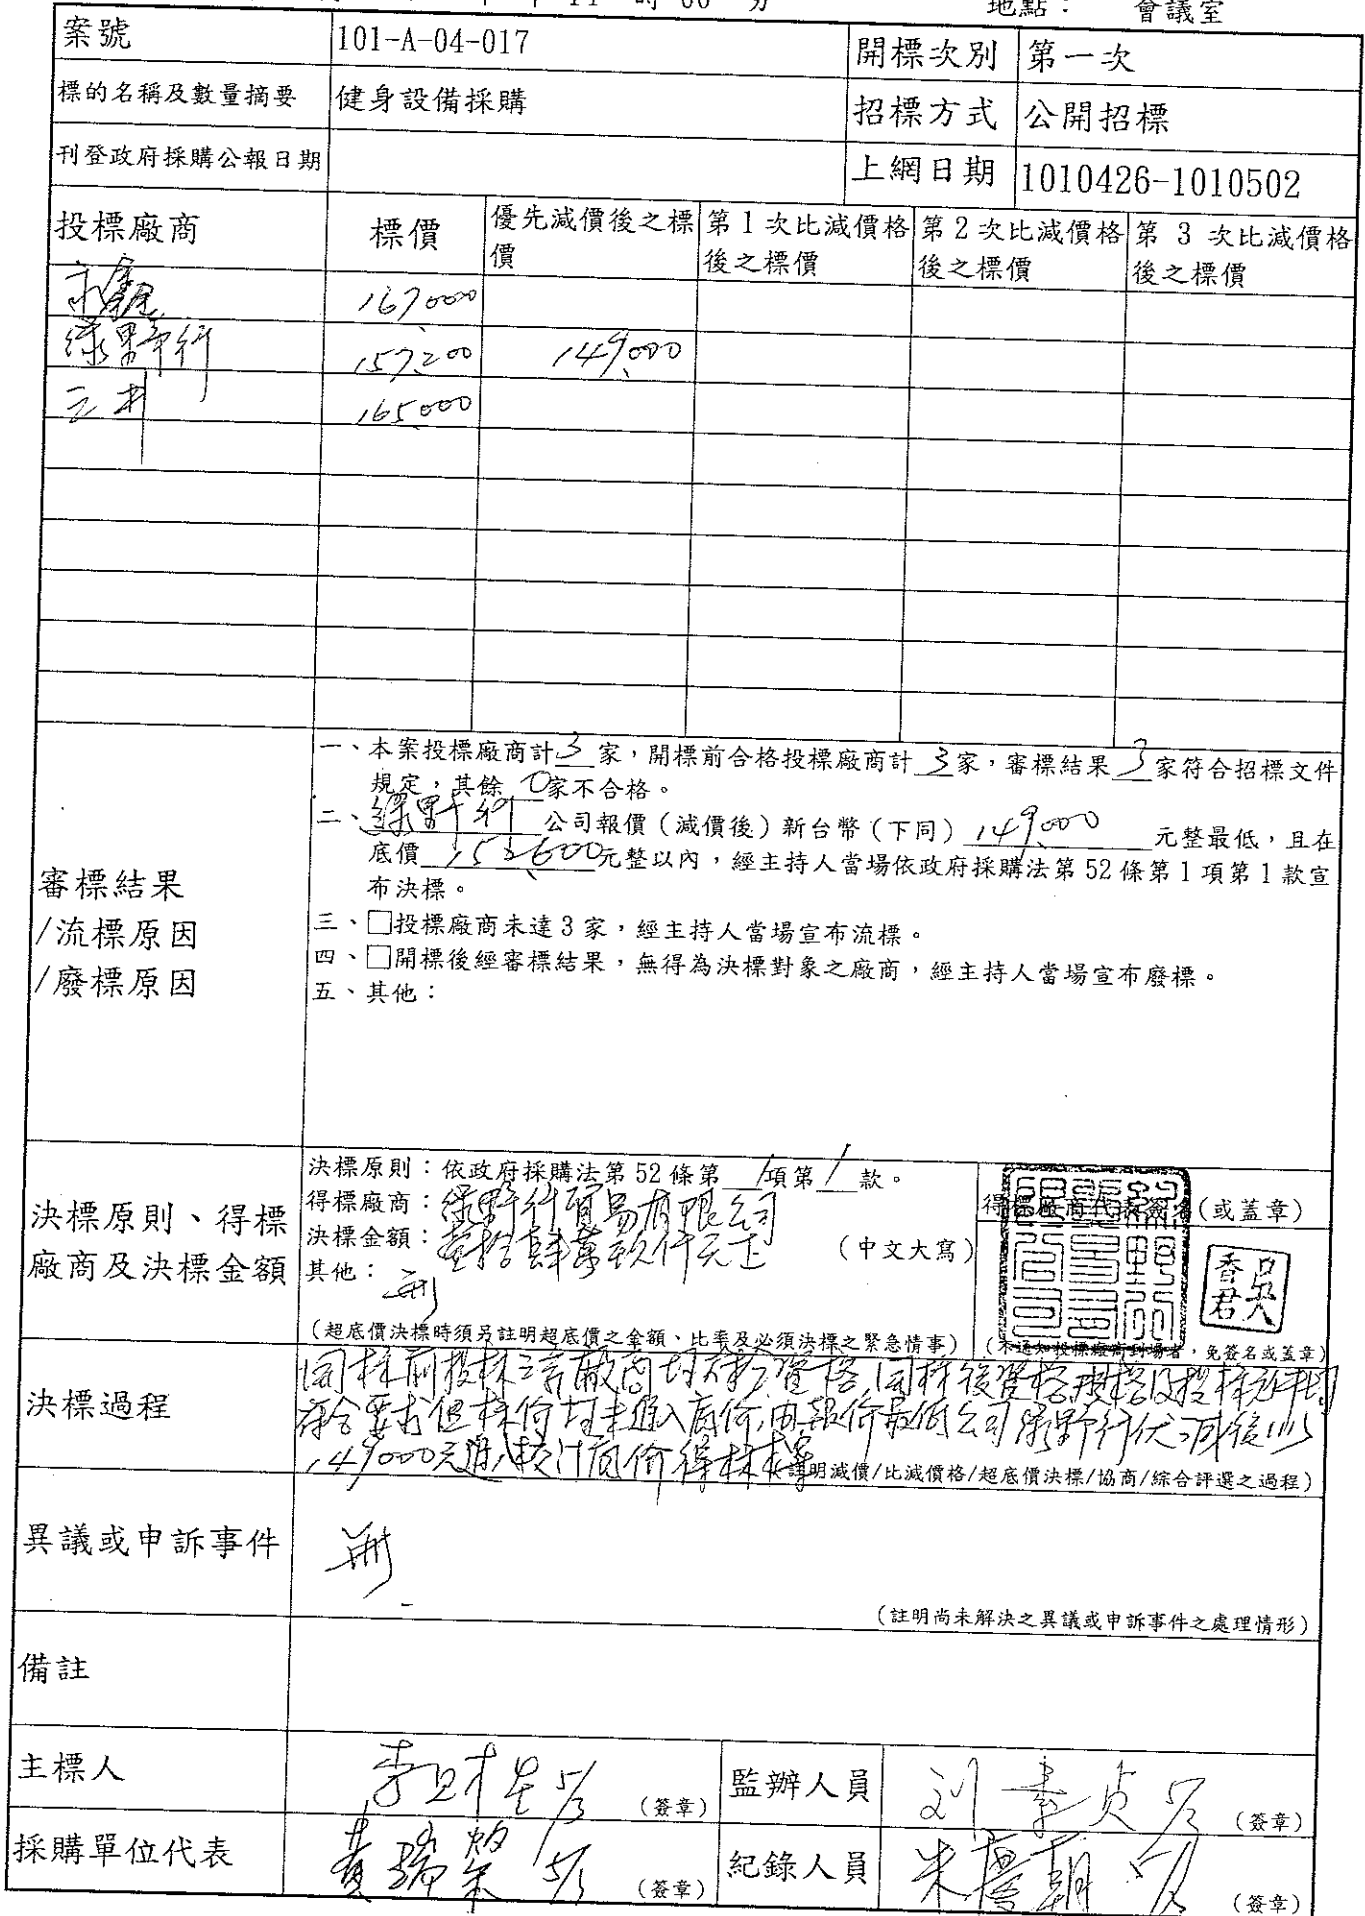 時 分 地點： 會議室
案號 101-A-04-017 開標次別 第一次
標的名稱及數量摘要 健身設備採購 招標方式 公開招標
刊登政府採購公報日期 上網日期 1010426-1010502
投標廠商 標價 優先減價後之標價 第1次比減價格後之標價 第2次比減價格後之標價 第 3 次比減價格後之標價
167,000
綠野行 157,200 149,000
165,000
審標結果
/流標原因
/廢標原因
一、本案投標廠商計 3 家，開標前合格投標廠商計 3 家，審標結果 3 家符合招標文件
規定，其餘 0 家不合格。
二、綠野行 公司報價（減價後）新台幣（下同） 149,000 元整最低，且在
底價 152,600 元整以內，經主持人當場依政府採購法第52條第1項第1款宣
布決標。
三、□投標廠商未達3家，經主持人當場宣布流標。
四、□開標後經審標結果，無得為決標對象之廠商，經主持人當場宣布廢標。
五、其他：
決標原則、得標
廠商及決標金額
決標原則：依政府採購法第52條第 1 項第 1 款。
得標廠商：綠野行貿易有限公司
決標金額：壹拾肆萬玖仟元正 （中文大寫）
其他：無
（超底價決標時須另註明超底價之金額、比率及必須決標之緊急情事）
得標廠商代表簽名（或蓋章）
吳香君
（未通知投標廠商到場者，免簽名或蓋章）
決標過程
開標前投標三家廠商均符合資格，開標後資格規格及投標文件均
符合要求但標價均未進入底價，由報價最低公司綠野行優先減價後以
149,000元進入核定底價得標本案
註明減價/比減價格/超底價決標/協商/綜合評選之過程）
異議或申訴事件 無
（註明尚未解決之異議或申訴事件之處理情形）
備註
主標人 5/3 （簽章） 監辦人員 劉素貞 5/3 （簽章）
採購單位代表 5/3 （簽章） 紀錄人員 5/3 （簽章）